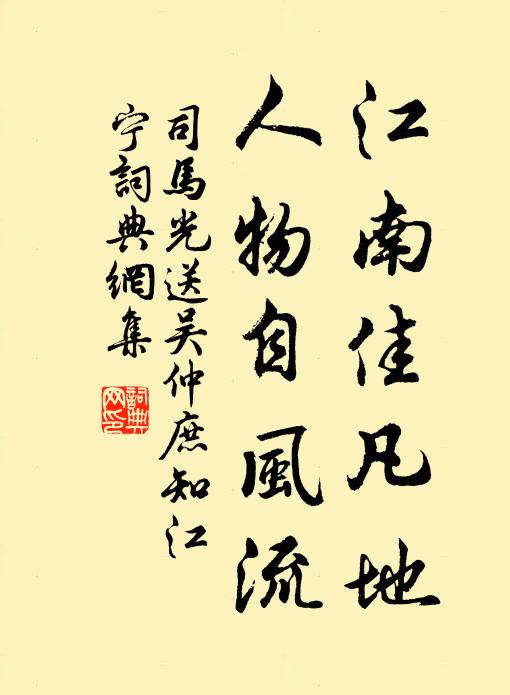 江南佳凡地
人物自風流
司馬光送吴仲庶知江
宁詞典網集
詞典
网印